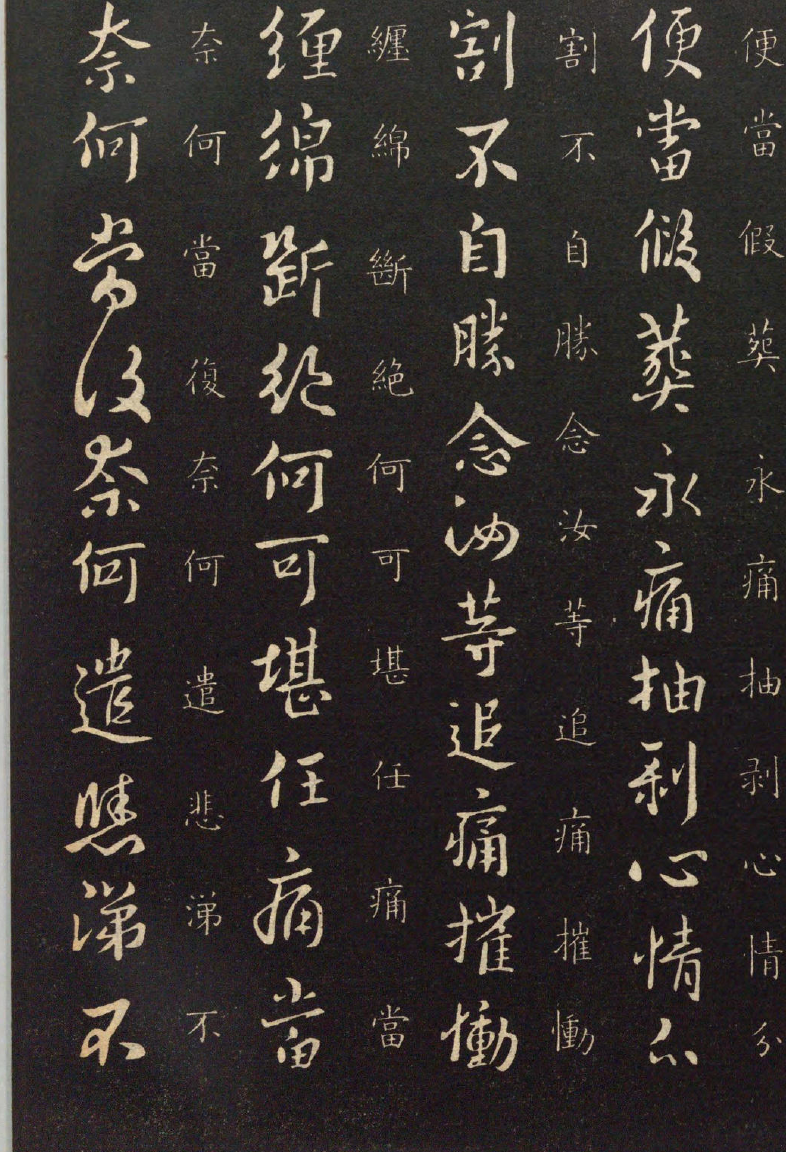 便當假葬永痛抽剥心情分
便當假葬永痛抽剥心情分
割不自勝念汝等追痛摧慟
割不自勝念汝等追痛摧慟
纏綿斷絶何可堪任痛當
纏綿斷絶何可堪任痛當
奈何當復奈何遣悲涕不
奈何當復奈何遣悲涕不